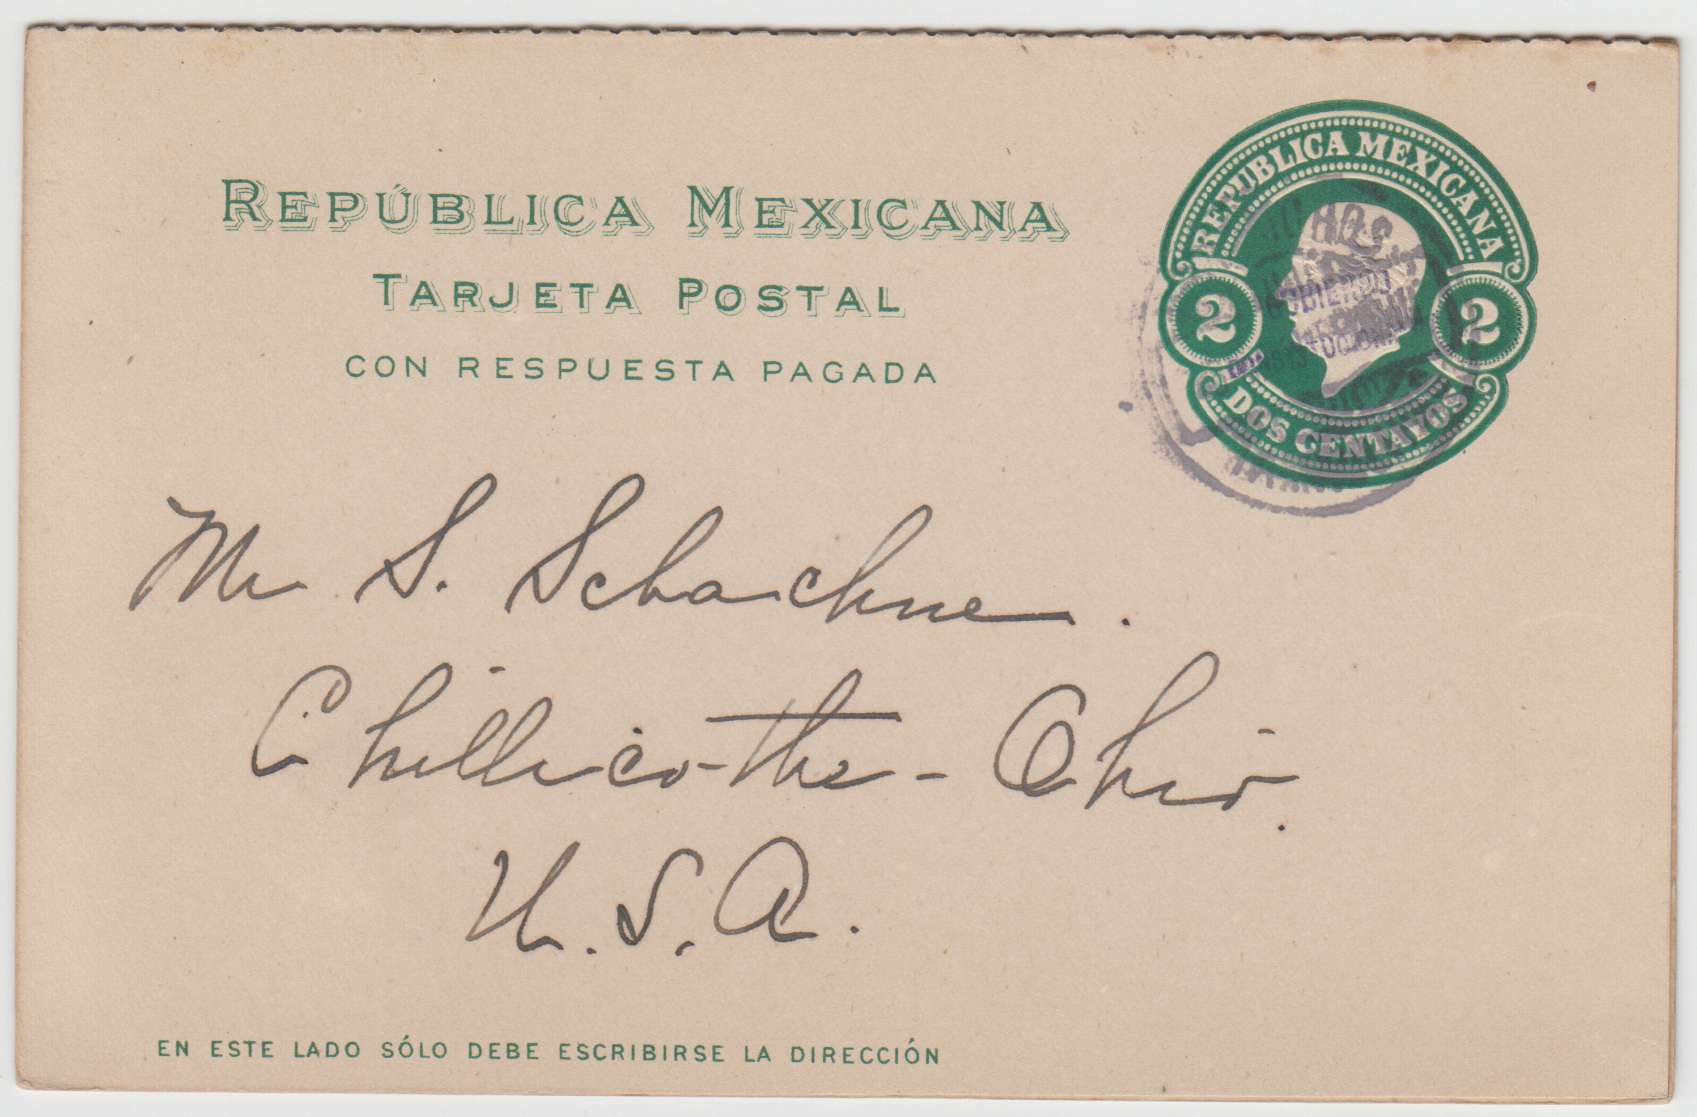 REPÚBLICA MEXICANA
TARJETA POSTAL
CON RESPUESTA PAGADA
REPUBLICA MEXICANA
2 2
DOS CENTAVOS
GOBIERNO
Mr S. Schachne.
Chillicothe - Ohio.
U.S.A.
EN ESTE LADO SÓLO DEBE ESCRIBIRSE LA DIRECCIÓN